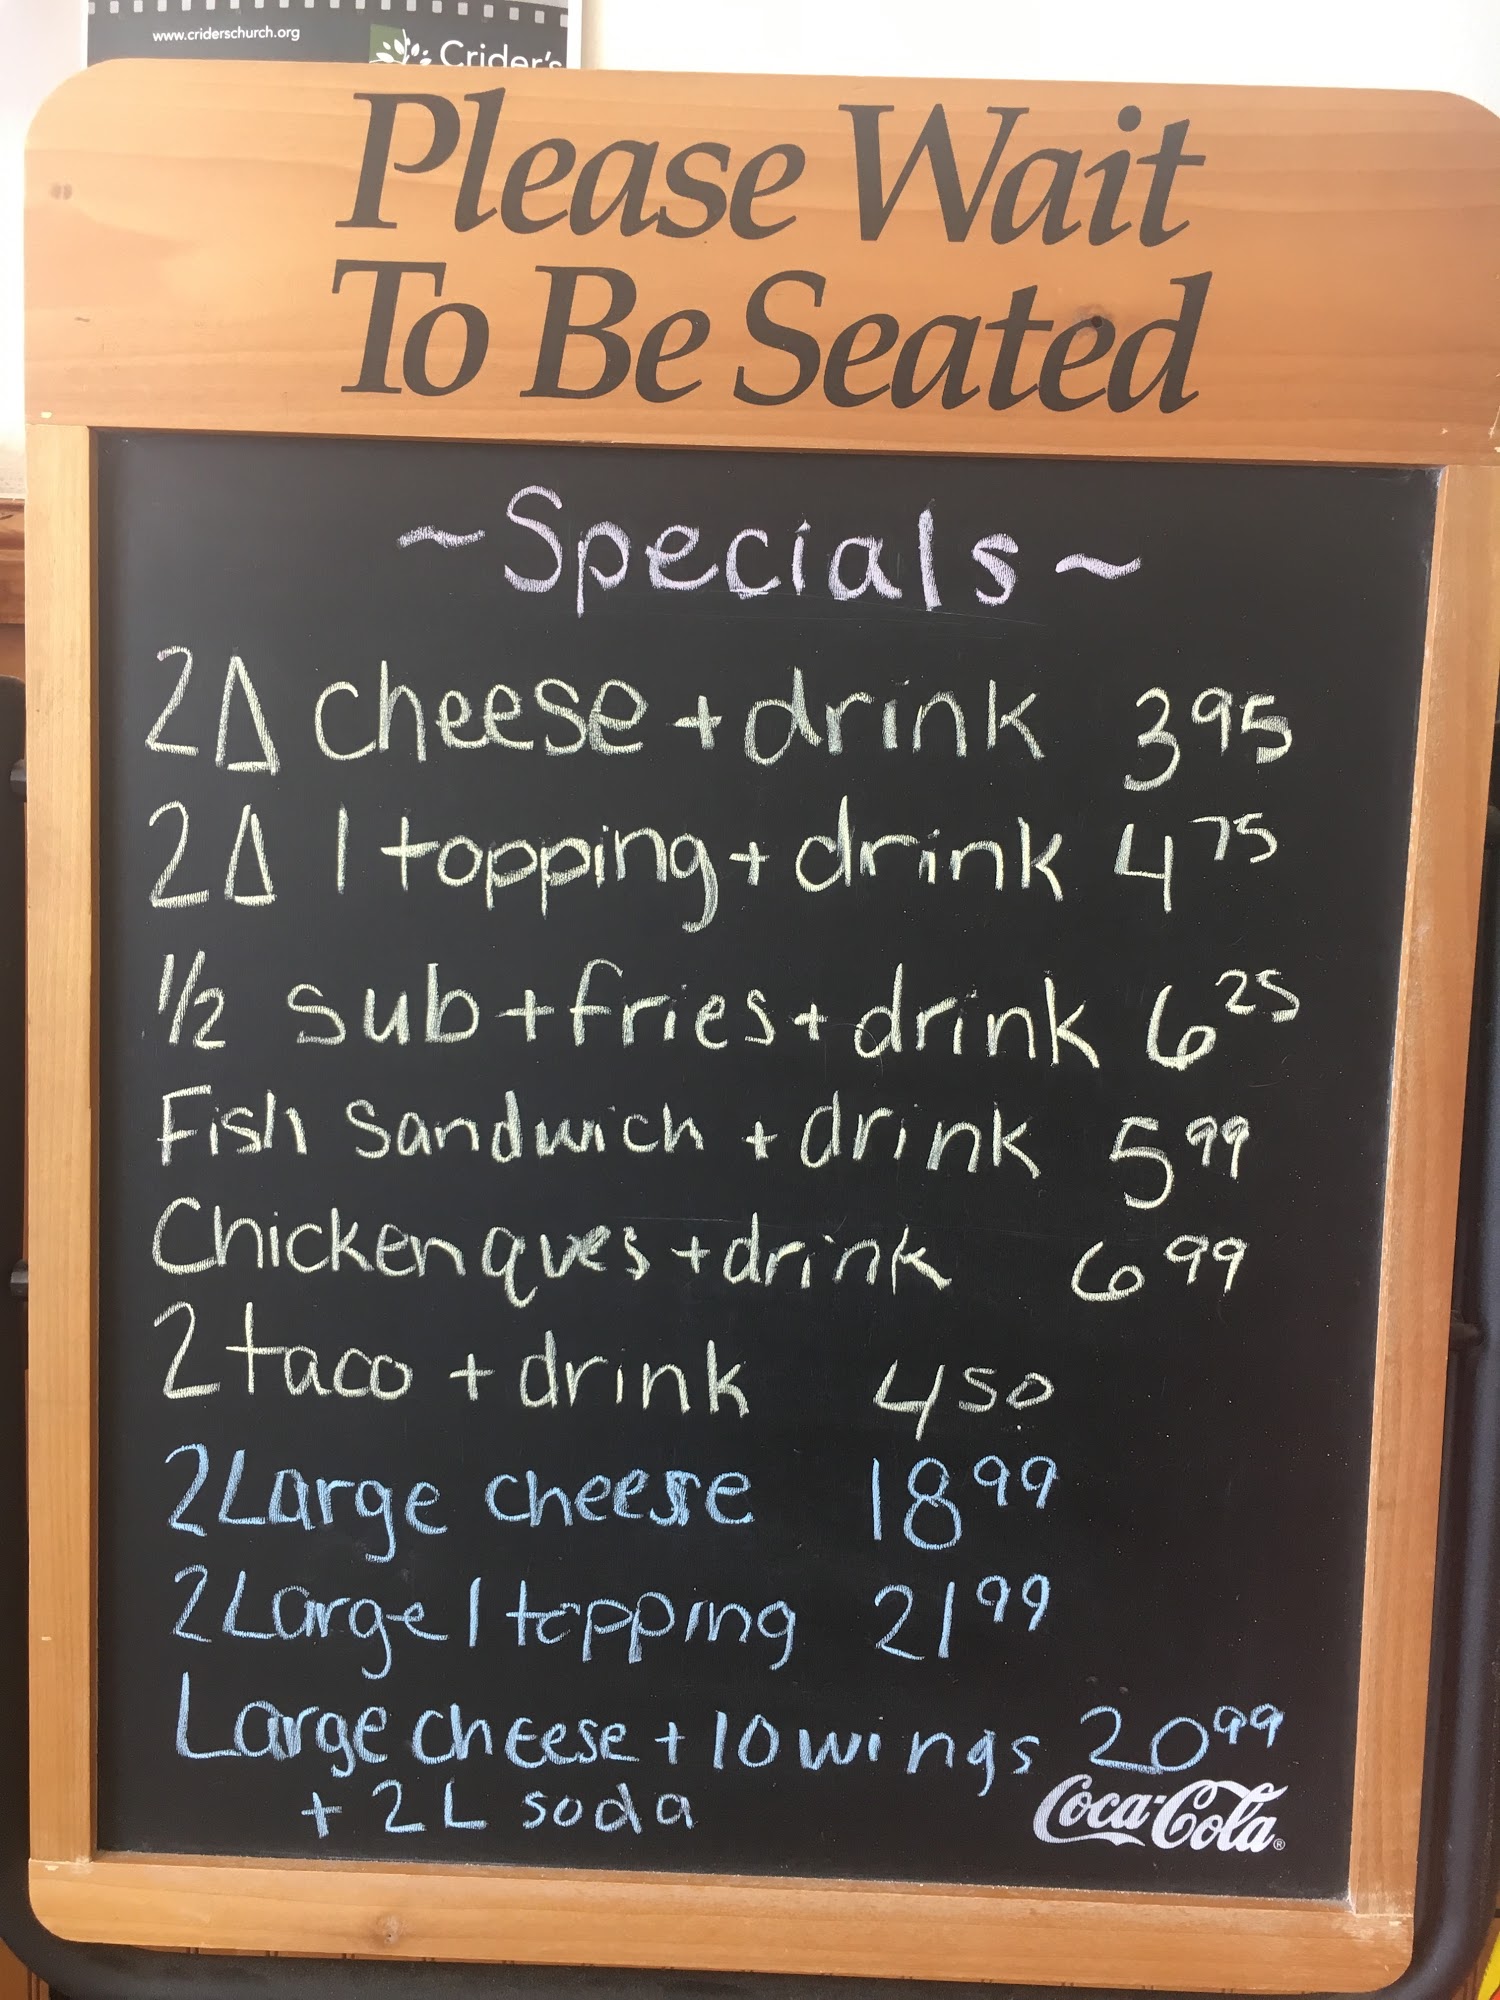 www.criderschurch.org
Crider's
Please Wait
To Be Seated
~Specials~
2Δ cheese + drink 3 95
2Δ 1 topping + drink 4 75
1/2 sub + fries + drink 6 25
Fish Sandwich + drink 5 99
Chicken ques + drink 6 99
2 taco + drink 4 50
2 Large cheese 18 99
2 Large 1 topping 21 99
Large cheese + 10 wings 20 99
+ 2 L soda
Coca-Cola®